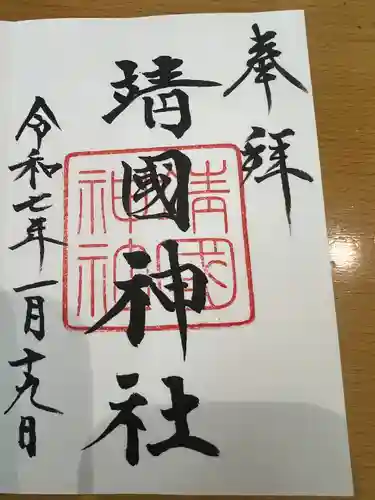 奉拝
靖國神社
靖國
神社
令和七年一月十九日